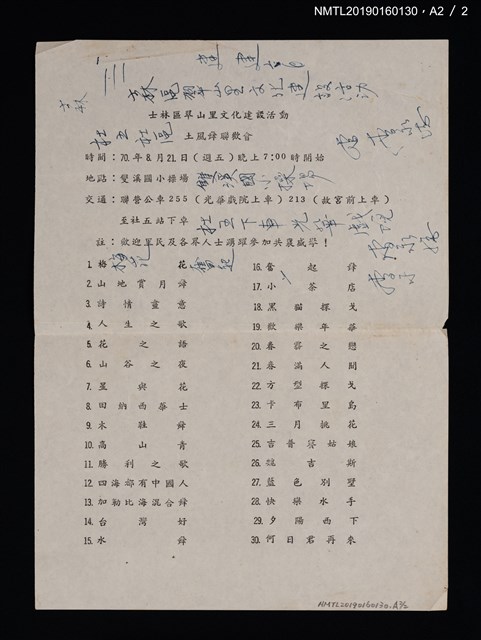 NMTL20190160130，A2 / 2
士林區翠山里文化建設活動
土風舞聯歡會
時間：70年8月21日（週五）晚上7:00時開始
地點：雙溪國小操場
雙溪國小操場
交通：聯營公車255（光華戲院上車）213（故宮前上車）
至社五站下車
註：歡迎里民及各界人士踴躍參加共襄盛舉！
1. 梅花
2. 山地賞月舞
3. 詩情畫意
4. 人生之歌
5. 花之語
6. 山谷之夜
7. 星與花
8. 田納西華士
9. 木鞋舞
10. 高山青
11. 勝利之歌
12. 四海都有中國人
13. 加勒比海混合舞
14. 台灣好
15. 水舞
16. 當起舞
17. 小茶店
18. 黑貓探戈
19. 歡樂年華
20. 春舞之戀
21. 春滿人間
22. 方塑探戈
23. 卡布里島
24. 三月桃花
25. 吉普賽姑娘
26. 魏吉斯
27. 藍色別墅
28. 快樂水手
29. 夕陽西下
30. 何日君再來
NMTL20190160130.A2/2